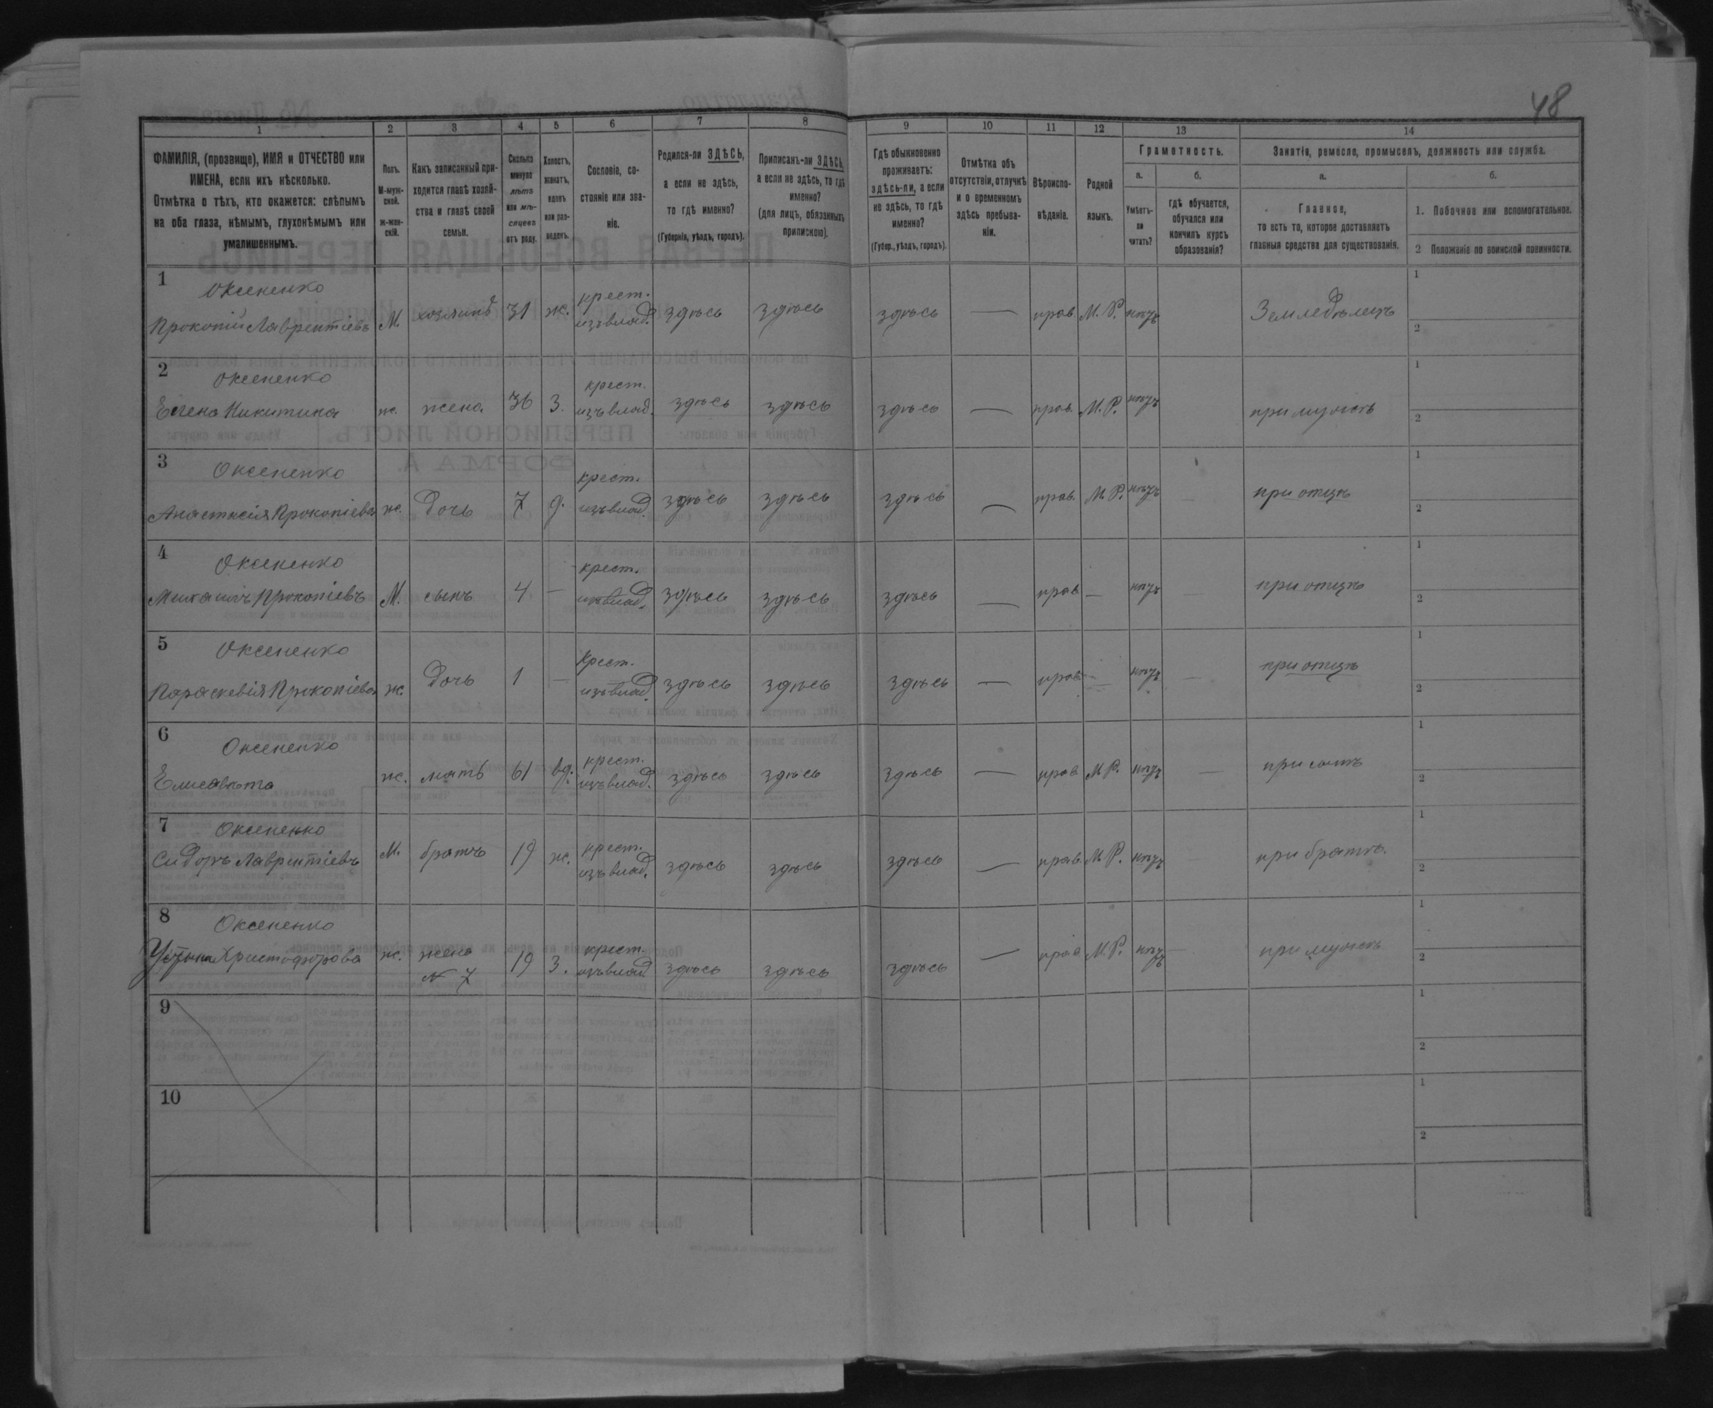 48
1 2 3 4 5 6 7 8 9 10 11 12 13 14
ФАМИЛІЯ, (прозвище), ИМЯ и ОТЧЕСТВО или
ИМЕНА, если ихъ нѣсколько.
Отмѣтка о тѣхъ, кто окажется: слѣпымъ
на оба глаза, нѣмымъ, глухонѣмымъ или
умалишеннымъ.
Полъ.
М-муж-
ской.
ж-жен-
скій.
Какъ записанный при-
ходится главѣ хозяй-
ства и главѣ своей
семьи.
Сколько
минуло
лѣтъ
или мѣ-
сяцевъ
отъ роду.
Холостъ,
женатъ,
вдовъ
или раз-
веденъ.
Сословіе, со-
стояніе или зва-
ніе.
Родился-ли ЗДѢСЬ,
а если не здѣсь,
то гдѣ именно?
(Губернія, уѣздъ, городъ).
Приписанъ-ли ЗДѢСЬ,
а если не здѣсь, то гдѣ
именно?
(для лицъ, обязанныхъ
припискою).
Гдѣ обыкновенно
проживаетъ:
здѣсь-ли, а если
не здѣсь, то гдѣ
именно?
(Губер., уѣздъ, городъ).
Отмѣтка объ
отсутствіи, отлучкѣ
и о временномъ
здѣсь пребыва-
ніи.
Вѣроиспо-
вѣданіе.
Родной
языкъ.
Грамотность.
а.
Умѣетъ-
ли
читать?
б.
гдѣ обучается,
обучался или
кончилъ курсъ
образованія?
Занятіе, ремесло, промыселъ, должность или служба.
а.
Главное,
то есть то, которое доставляетъ
главныя средства для существованія.
б.
1. Побочное или вспомогательное.
2 Положеніе по воинской повинности.
1 Оксененко крест. 1
Прокопій Лаврентіевъ М. хозяинъ 31 ж. изъ влад. здѣсь здѣсь здѣсь — прав. М. Р. нѣтъ Земледѣлецъ 2
2 Оксененко крест. 1
Елена Никитина ж. жена 36 З. изъ влад. здѣсь здѣсь здѣсь — прав. М. Р. нѣтъ при мужѣ 2
3 Оксененко крест. 1
Анастасія Прокопіева ж. дочь 7 д. изъ влад. здѣсь здѣсь здѣсь — прав. М. Р. нѣтъ — при отцѣ 2
4 Оксененко крест. 1
Михаилъ Прокопіевъ М. сынъ 4 — изъ влад. здѣсь здѣсь здѣсь — прав. — нѣтъ — при отцѣ 2
5 Оксененко Крест. 1
Параскевія Прокопіева ж. дочь 1 — изъ влад. здѣсь здѣсь здѣсь — прав. — нѣтъ — при отцѣ 2
6 Оксененко крест. 1
Елисавета ж. мать 61 вд. изъ влад. здѣсь здѣсь здѣсь — прав. М. Р. нѣтъ — при сынѣ 2
7 Оксененко крест. 1
Сидоръ Лаврентіевъ М. братъ 19 ж. изъ влад. здѣсь здѣсь здѣсь — прав. М. Р. нѣтъ при братѣ 2
8 Оксененко крест. 1
Христофорова ж. жена 19 З. изъ влад. здѣсь здѣсь здѣсь — прав. М. Р. нѣтъ — при мужѣ 2
№ 7
9 1
2
10 1
2